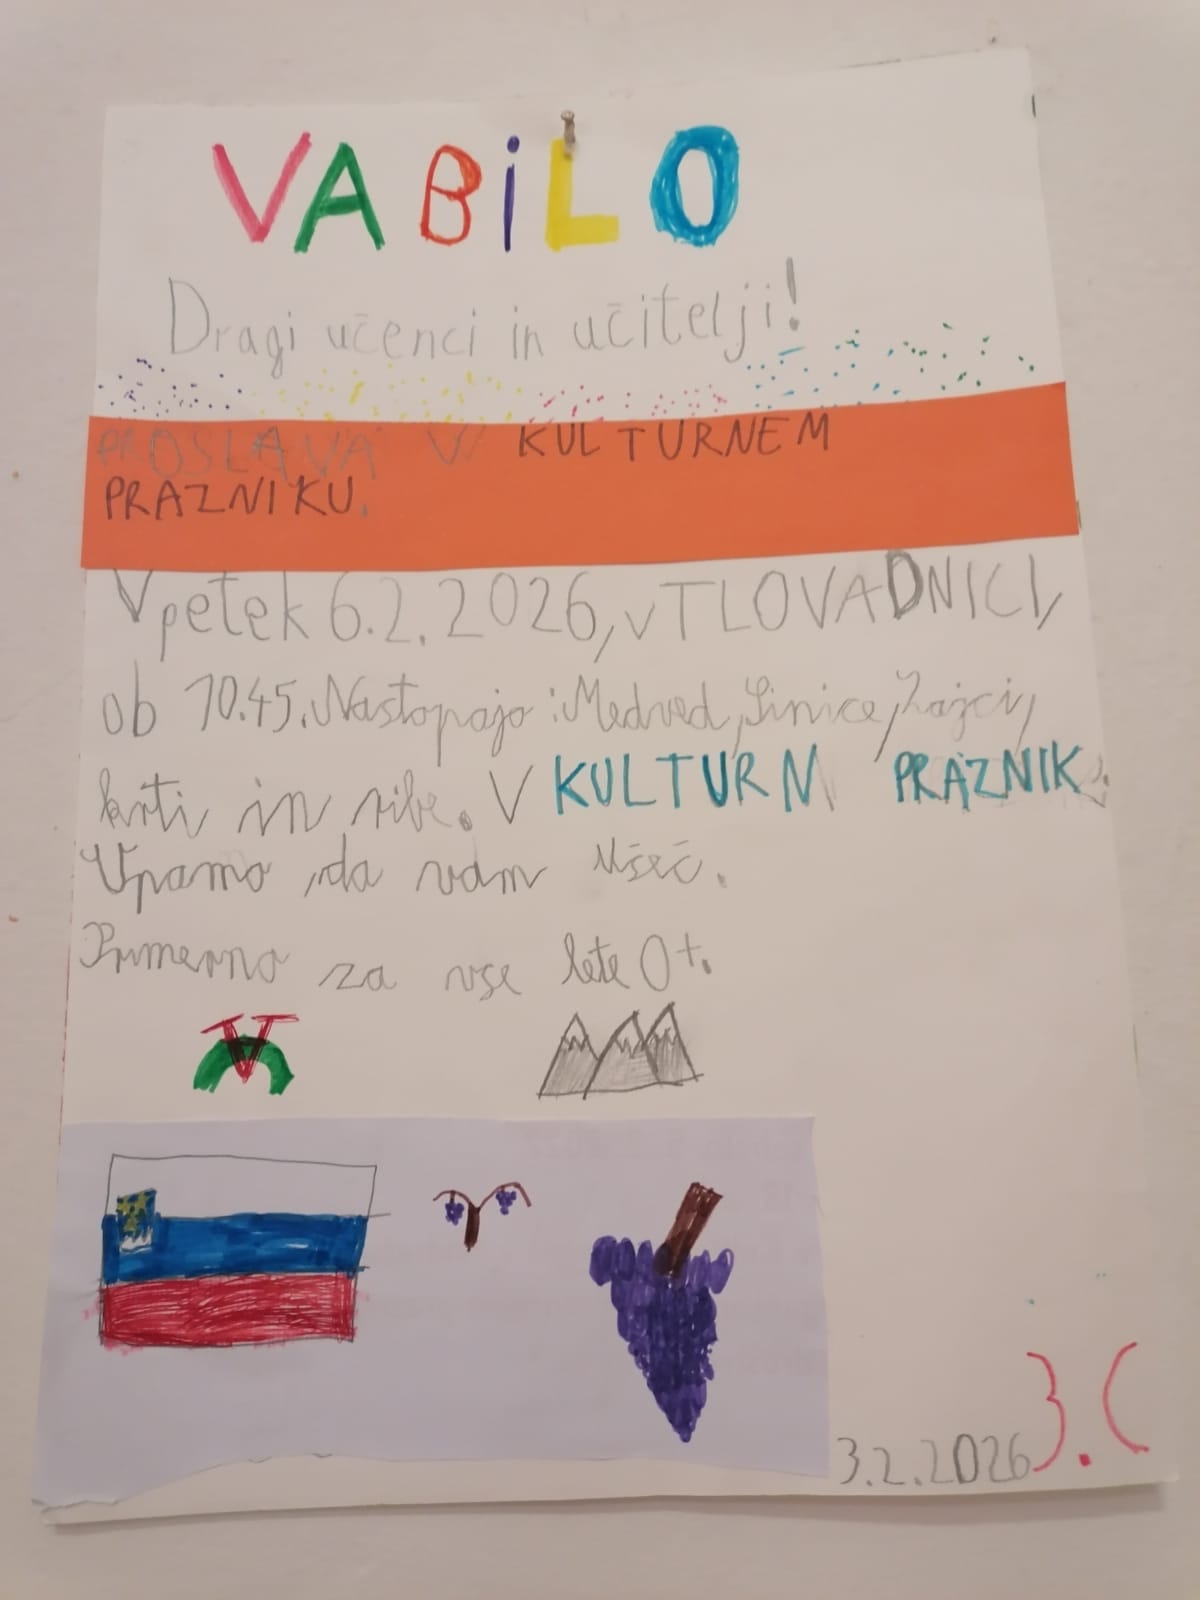 VABiLO
Dragi učenci in učitelji!
PROSLAVA V KULTURNEM
PRAZNIKU.
V petek 6.2.2026, v TLOVADNICI,
ob 10.45. Nastopajo: Medved, Sinice, Zajci,
krti in ribe. V KULTURN PRAZNIK.
Upamo, da vam všeč.
Primerno za vse lete 0+.
3.2.2026 3.C